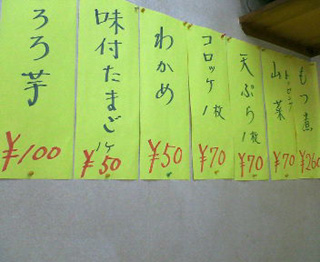 もつ煮
¥260
トッピング
山菜
¥70
天ぷら1枚
¥70
コロッケ1枚
¥70
わかめ
¥50
味付たまご1ケ
¥50
ろろ芋
¥100